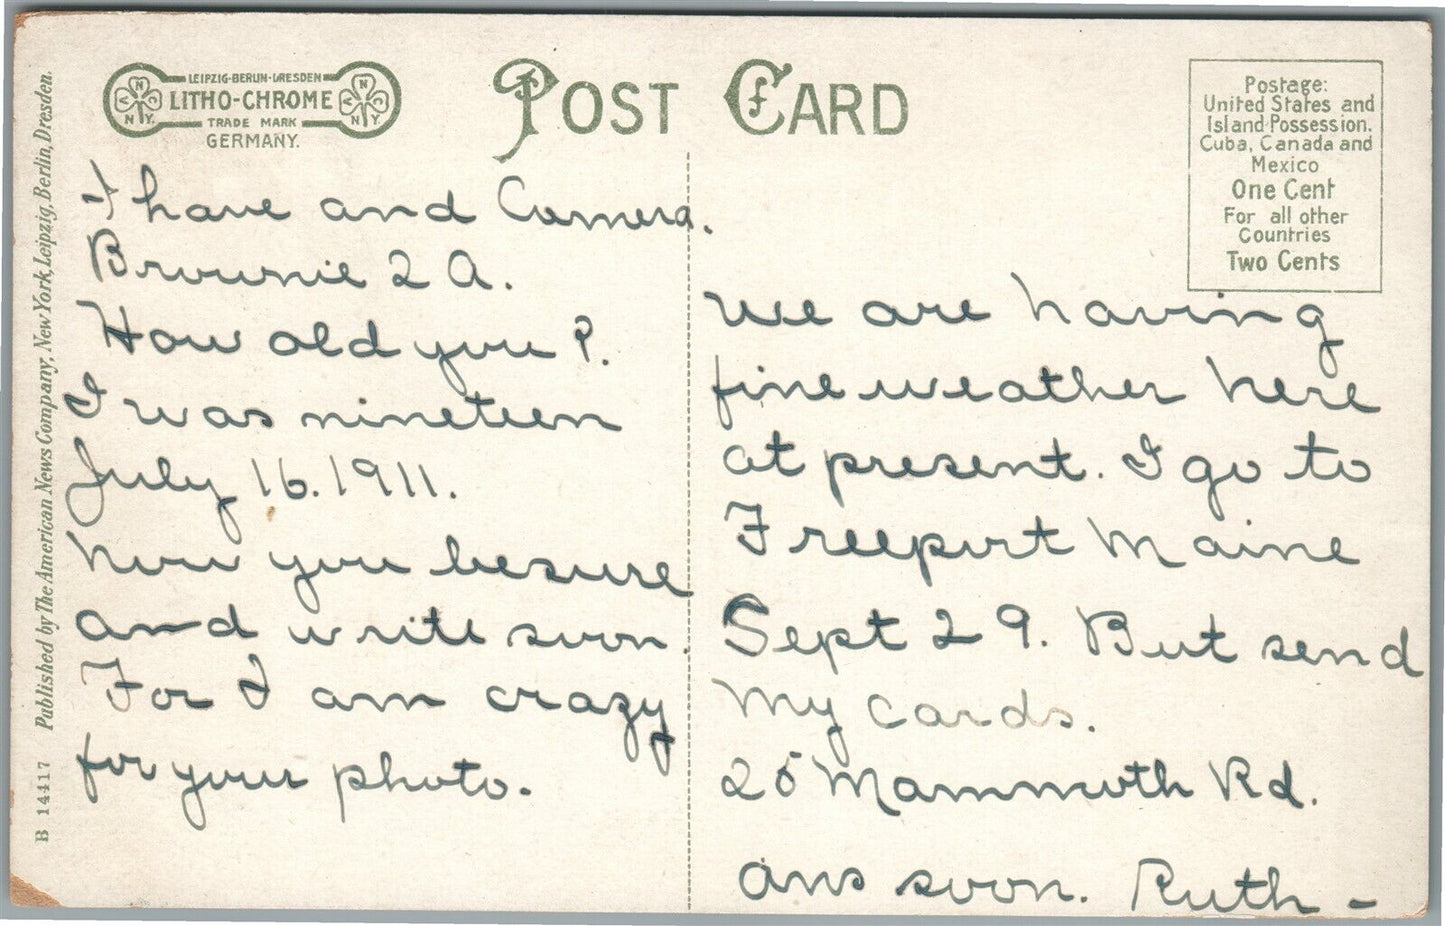 LEIPZIG-BERLIN-DRESDEN
LITHO-CHROME
TRADE MARK
GERMANY.
POST CARD
Postage:
United States and
Island Possession.
Cuba, Canada and
Mexico
One Cent
For all other
Countries
Two Cents
B 14417 Published by The American News Company, New York, Leipzig, Berlin, Dresden.
I have and Camera.
Brownie 2 A.
How old you ?.
I was nineteen
July 16. 1911.
Now you besure
and write soon.
For I am crazy
for your photo.
We are having
fine weather here
at present. I go to
Freeport Maine
Sept 29. But send
My cards.
25 Mammoth Rd.
ans soon. Ruth -